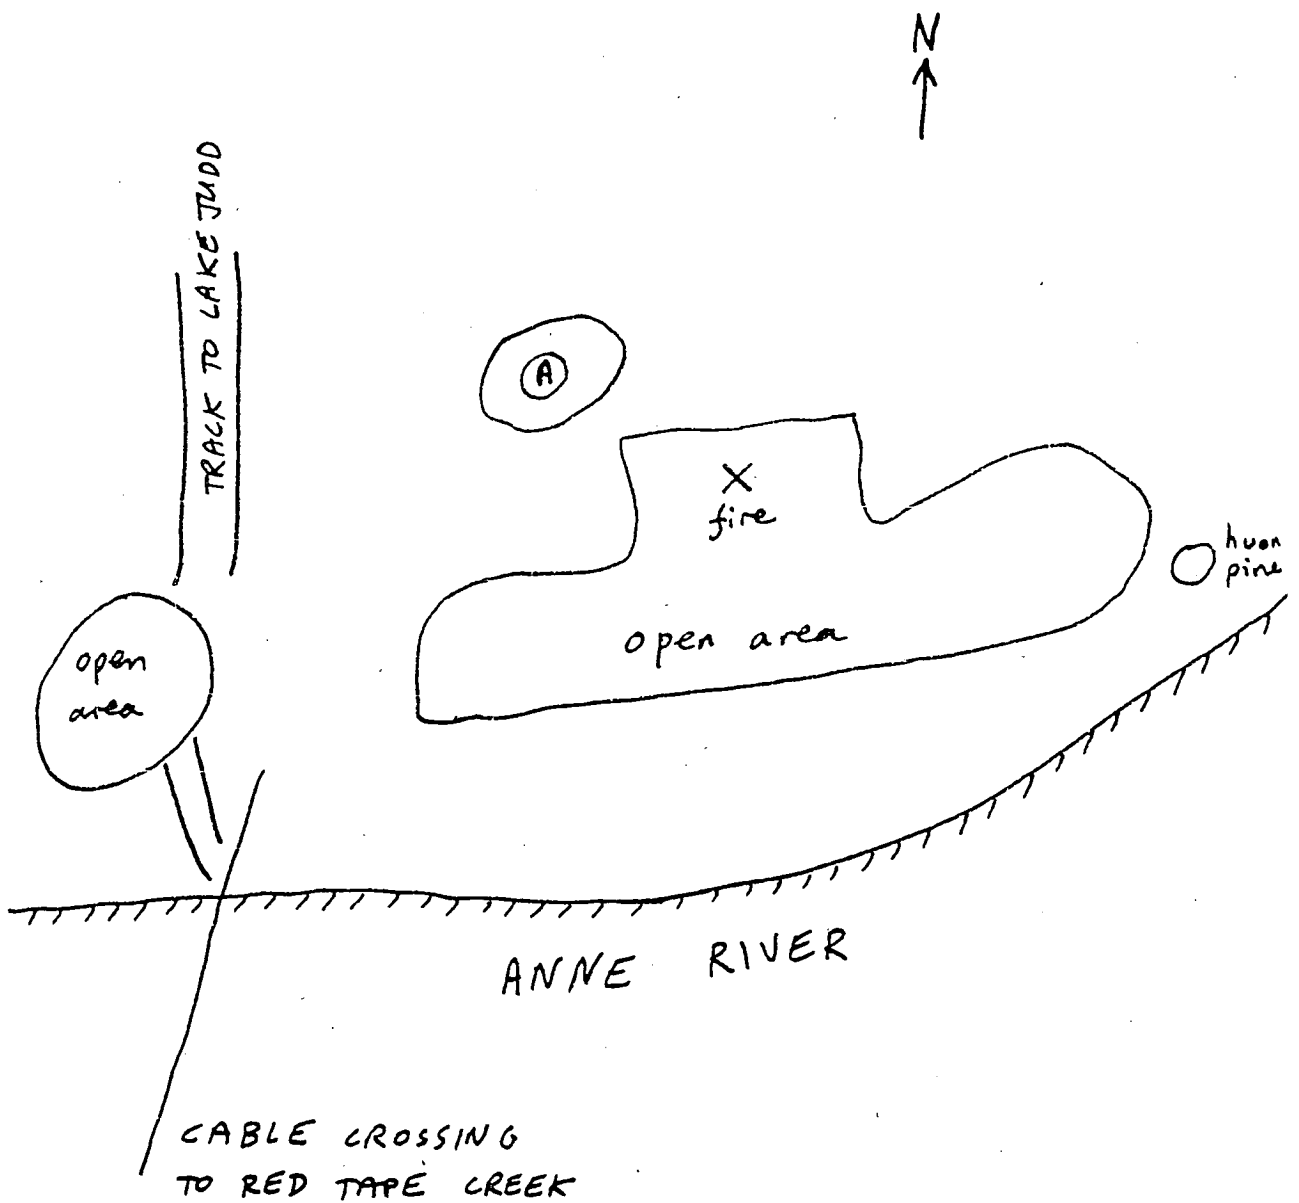 N
TRACK TO LAKE JUDD
A
X
fire
huon
pine
open area
open
area
ANNE RIVER
CABLE CROSSING
TO RED TAPE CREEK